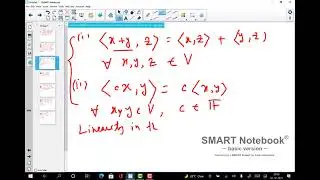 (i) ⟨x+y, z⟩ = ⟨x, z⟩ + ⟨y, z⟩
∀ x, y, z ∈ V
(ii) ⟨cx, y⟩ = c⟨x, y⟩
∀ x, y ∈ V, c ∈ F
Linearity in th
SMART Notebook®
— basic version —